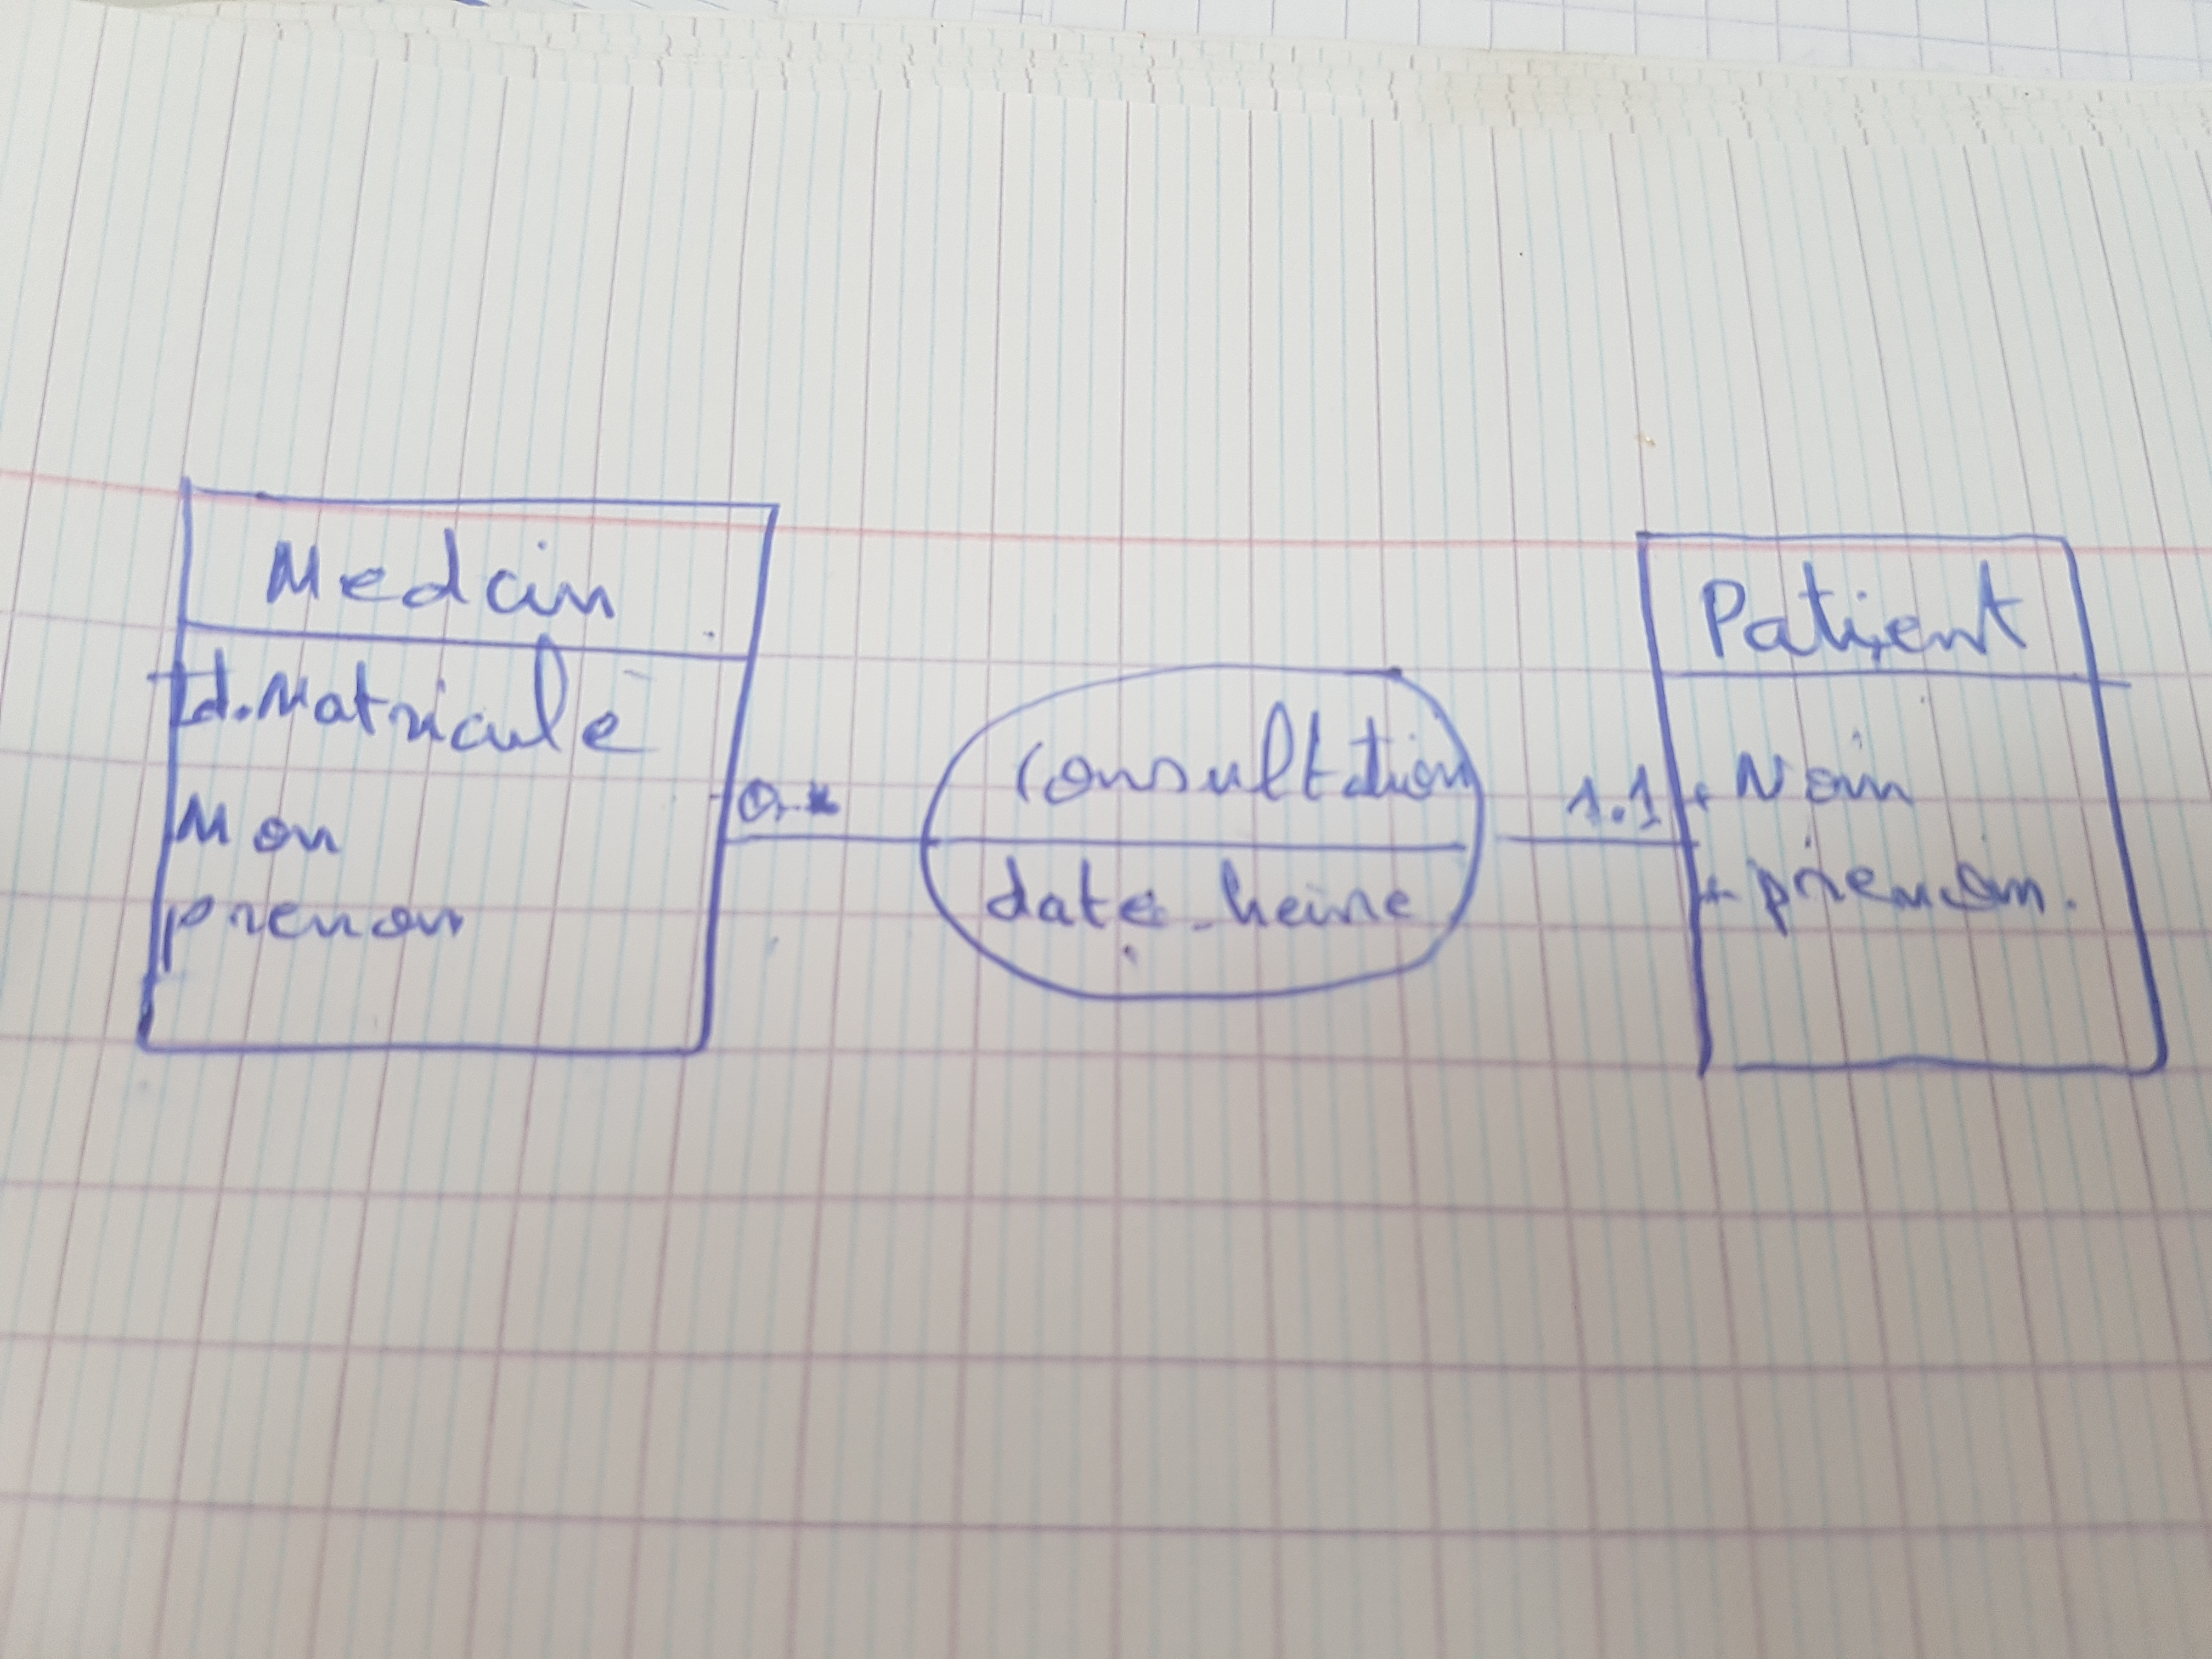 Medcin
Id.Matricule
Mon
prenom
0.*
consultation
date_heure
1.1
Patient
+ Nom
+ prenom.